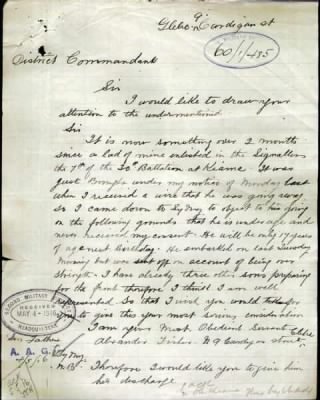 9 Cardigan st
Glebe
60/1/435
District Commandant
Sir
I would like to draw your
attention to the undermentioned
Sir
It is now something over 2 months
since a lad of mine enlisted in the Signallers
the 7th of the 30th Battalion at Kiama. It was
just Brought under my notice of Monday last
when I received a wire that he was going away
so I came down to Sydney to object to his going
on the following grounds that he is under age and
never received my consent. He will be only 17 years
of age next Birthday. He embarked on last Tuesday
Morning but was put off on account of being over
strength. I have already three other sons preparing
for the front therefore I think I am well
represented. So that I wish you would
for you to give this your most serious consideration
I am your Most Obedient Servant
Alexander Fisher. No 9 Cardigan street Glebe
Sydney
N.B. Therefore I would like you to give him
his discharge
SECOND MILITARY
RECEIVED
MAY 4 1916
HEADQUARTERS
A. A. G.